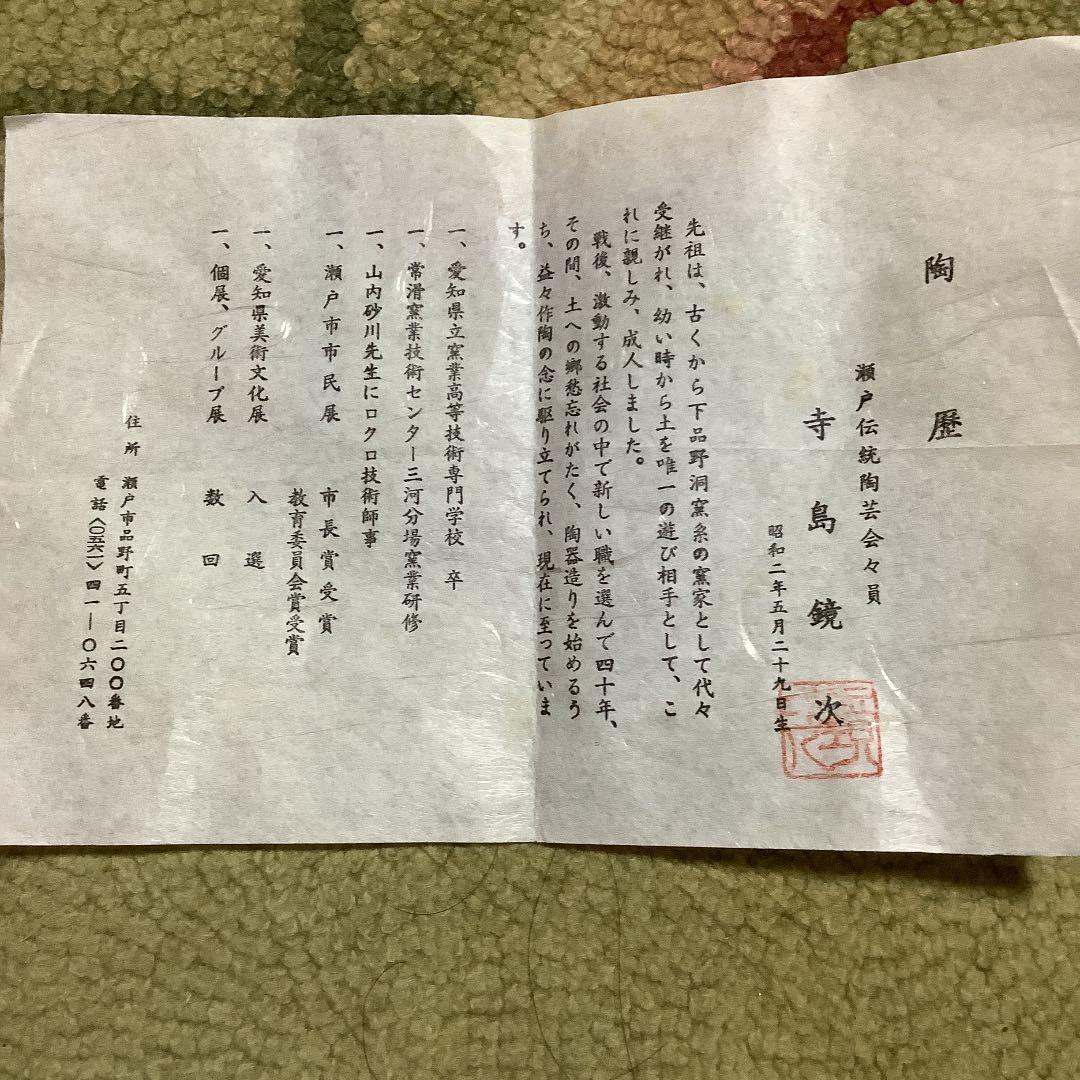 陶歴
瀬戸伝統陶芸会々員
寺島鏡次
昭和二年五月二十九日生
先祖は、古くから下品野洞窯系の窯家として代々
受継がれ、幼い時から土を唯一の遊び相手として、こ
れに親しみ、成人しました。
戦後、激動する社会の中で新しい職を選んで四十年、
その間、土への郷愁忘れがたく、陶器造りを始めるう
ち、益々作陶の念に駆り立てられ、現在に至っていま
す。
一、愛知県立窯業高等技術専門学校 卒
一、常滑窯業技術センター三河分場窯業研修
一、山内砂川先生にロクロ技術師事
一、瀬戸市市民展 市長賞受賞
教育委員会賞受賞
一、愛知県美術文化展 入選
一、個展、グループ展 数回
住所 瀬戸市品野町五丁目二〇〇番地
電話〈〇五六一〉四一―〇六四八番